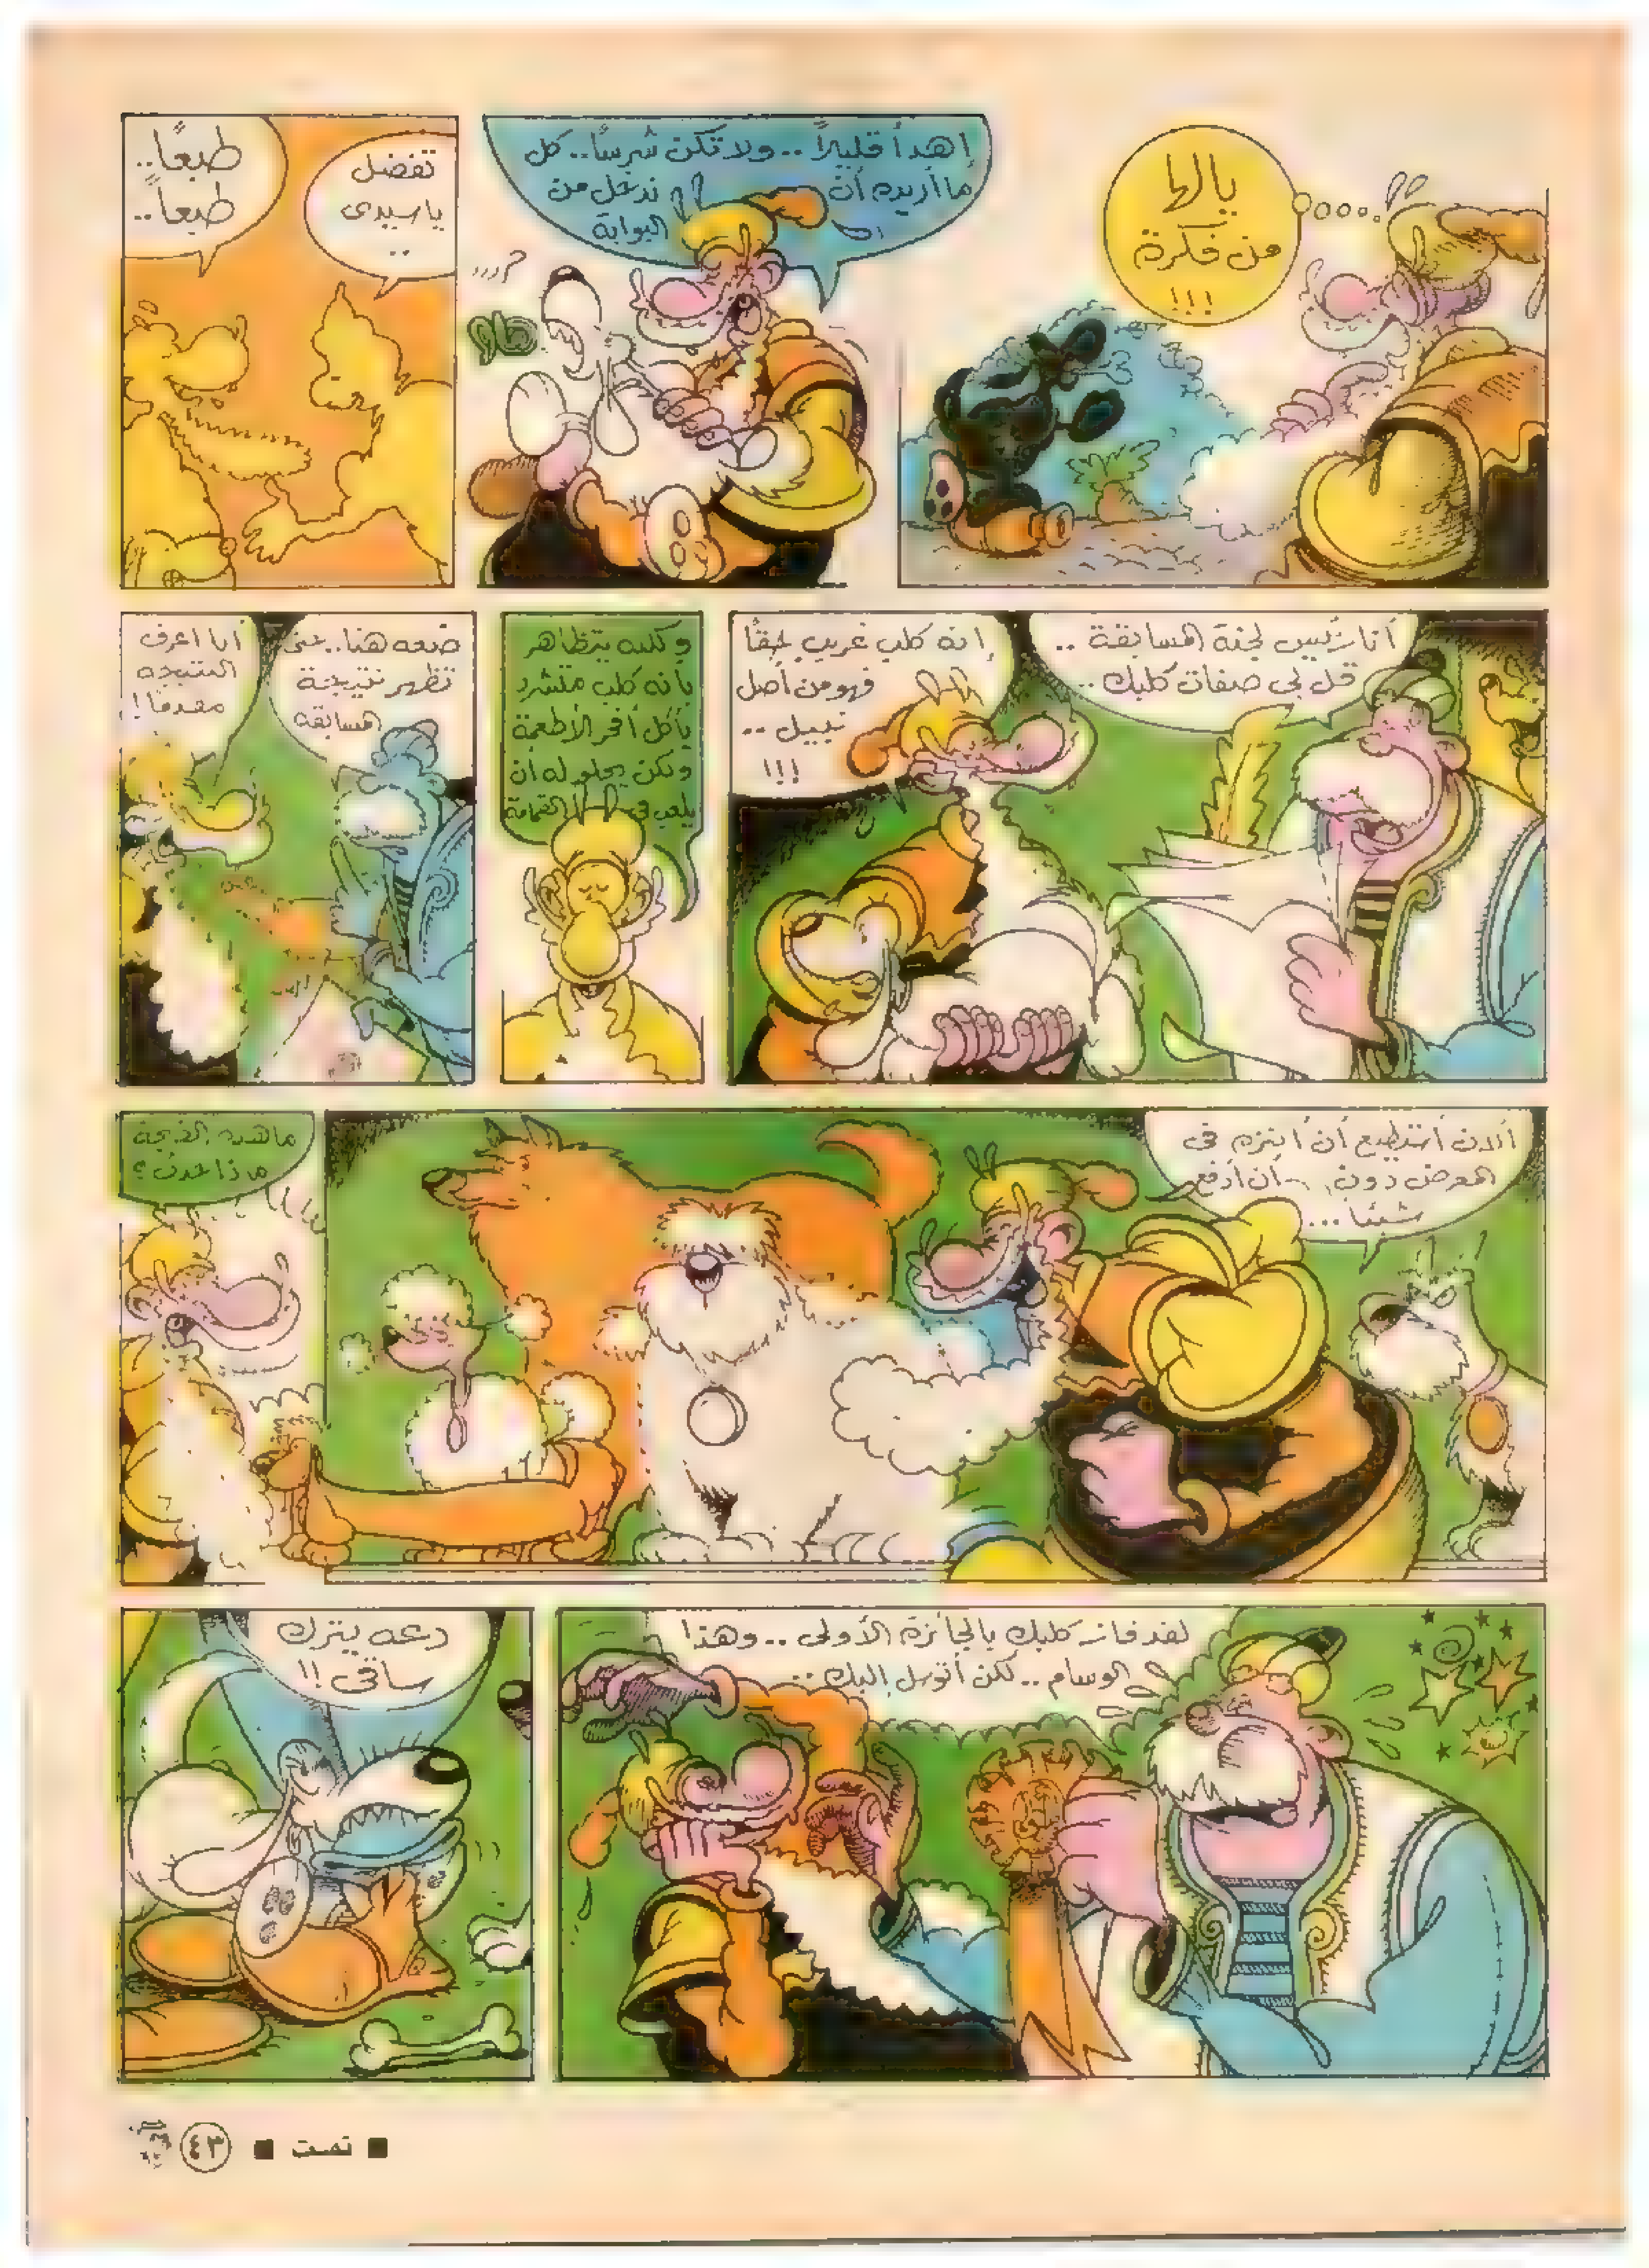 يالها
من فكرة
!!!
إهدأ قليلاً .. ولا تكن شرسًا .. كل
ما أريده أن ندخل من
البوابة
هاو
تفضل
ياسيدى
..
طبعًا..
طبعاً..
أنا رئيس لجنة المسابقة ..
قل لى صفات كلبك ..
إنه كلب غريب حقًا
فهو من أصل
نبيل ..
!!!
ولكنه يتظاهر
بأنه كلب متشرد
يأكل أفخر الأطعمة
ولكن يحلو له أن
يلعب فى القمامة
ضعه هنا .. حتى
تظهر نتيجة
المسابقة
أنا أعرف
النتيجه
مقدمًا!!
ألان أستطيع أن أتنزه فى
المعرض دون أن أدفع
شيئا ...
ما هذه الضجة
ماذا حدث ؟
لقد فاز كلبك بالجائزة الأولى .. وهذا
الوسام .. لكن أتوسل إليك ..
دعه يترك
ساقى !!
■ تمت ■ ٤٣